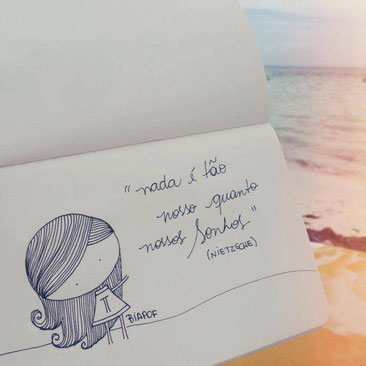 "nada é tão
nosso quanto
nossos sonhos"
(NIETZSCHE)
BIAPOF